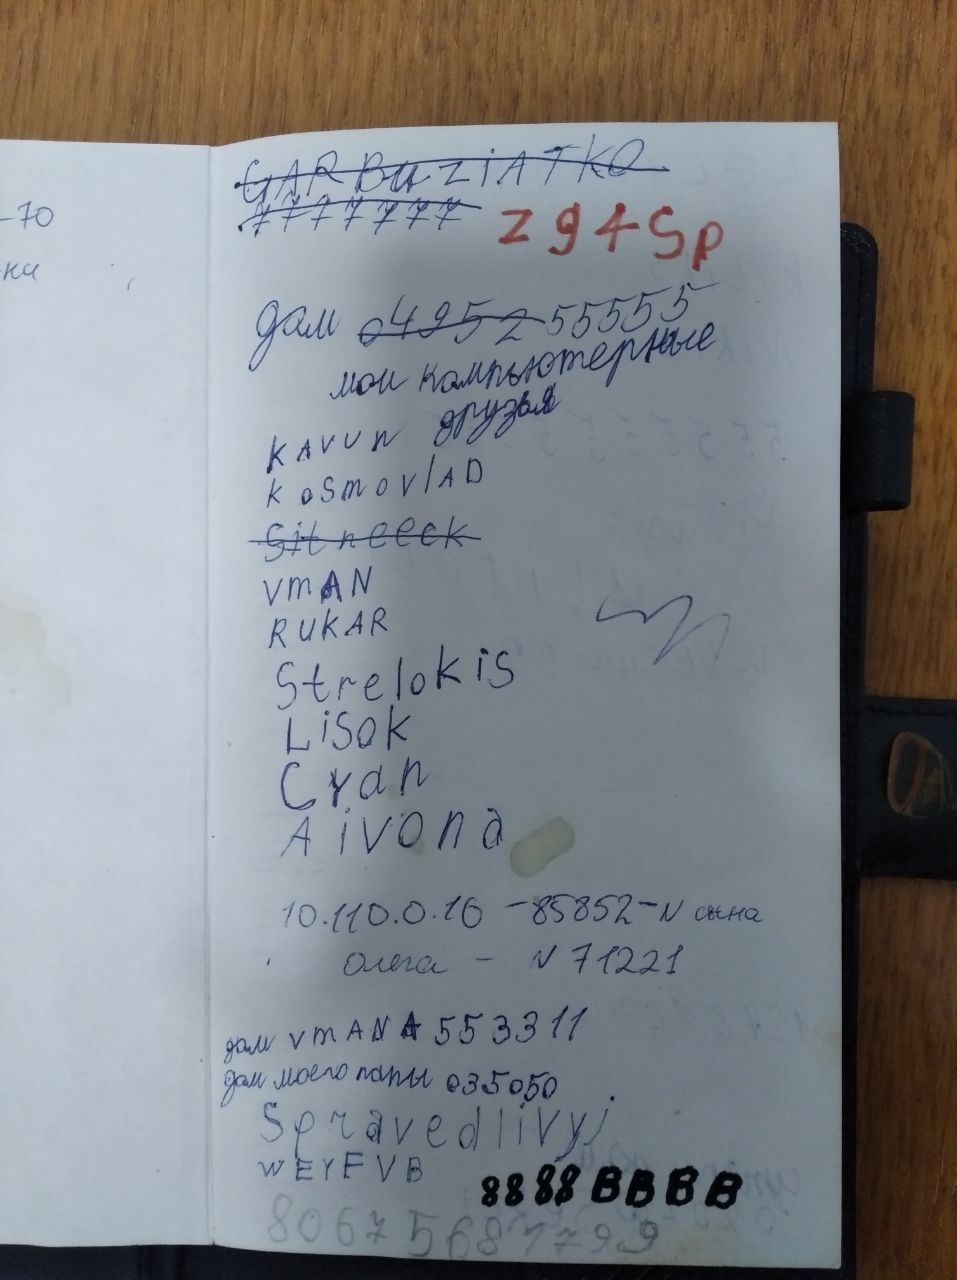 -70
ки
GARBUZIATKO
7777777
z94Sp
дом 0495255555
мои компьютерные
друзья
KAVUN
KOSMOVlAD
Sitneeck
VMAN
RUKAR
Strelokis
Lisok
Cydn
Aivona
10.110.0.16 -85852-N сына
Олега - N 71221
дом VMANA 553311
дом моего папы 035050
Spravedlivyj
WEYFVB
8888BBBB
80675681799